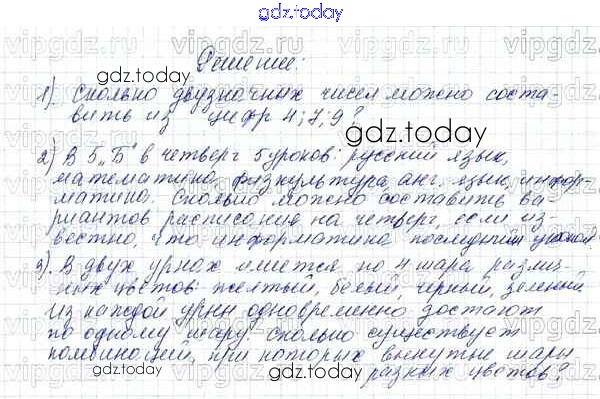 gdz.today
Решение:
1) Сколько двузначных чисел можно соста-
вить из цифр 4; 7; 9?
2) В 5 „Б" в четверг 5 уроков: русский язык,
математика, физкультура, анг. язык, инфор-
матика. Сколько можно составить ва-
риантов расписания на четверг, если из-
вестно, что информатика последний урок?
3). В двух урнах имеется по 4 шара различ-
ных цветов: желтый, белый, черный, зеленый
из каждой урны одновременно достают
по одному шару. Сколько существует
комбинаций, при которых вынутые шары
разных цветов?
gdz.today
gdz.today
gdz.today
gdz.today
gdz.today
gdz.today